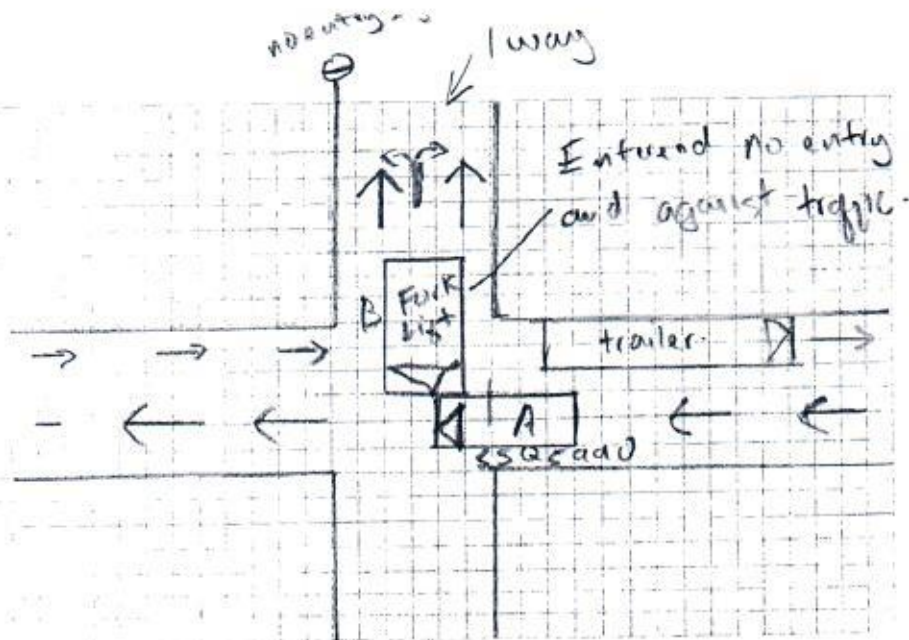 no entry
1 way
Enterend no entry
and against traffic.
B
Fork
Lift
trailer.
A